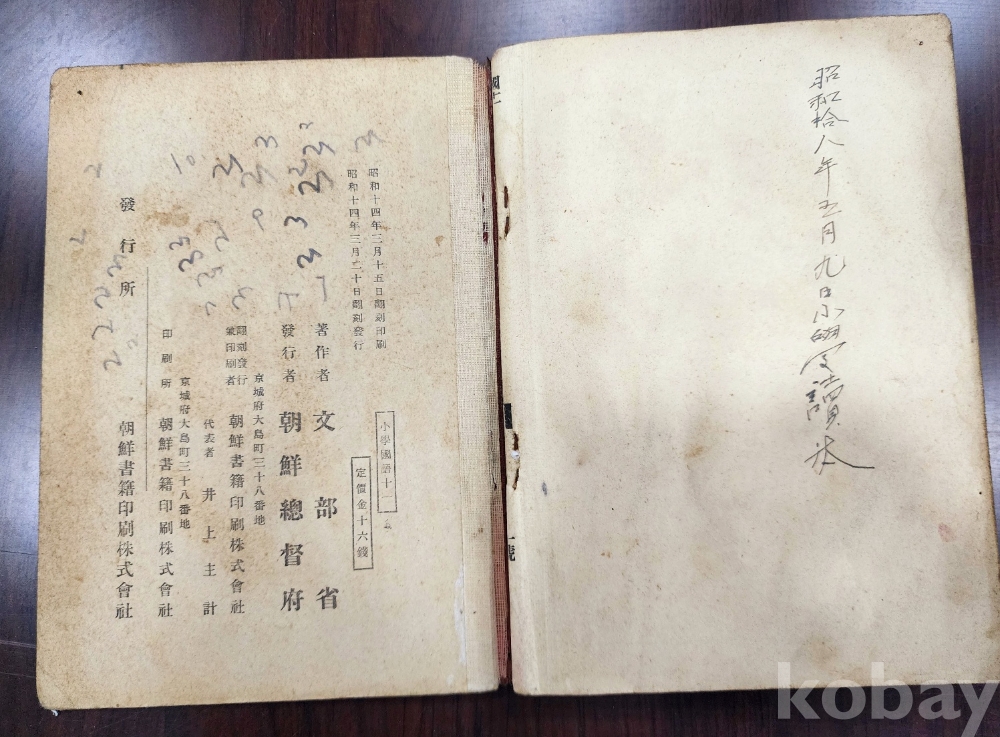 昭和拾八年五月九日小學讀本
小學國語十一
定價金十六錢
昭和十四年二月十五日飜刻印刷
昭和十四年三月二十日飜刻發行
著作者 文部省
發行者 朝鮮總督府
京城府大島町三十八番地
飜刻發行兼印刷者 朝鮮書籍印刷株式會社
代表者 井上主計
京城府大島町三十八番地
印刷所 朝鮮書籍印刷株式會社
發行所 朝鮮書籍印刷株式會社
kobay